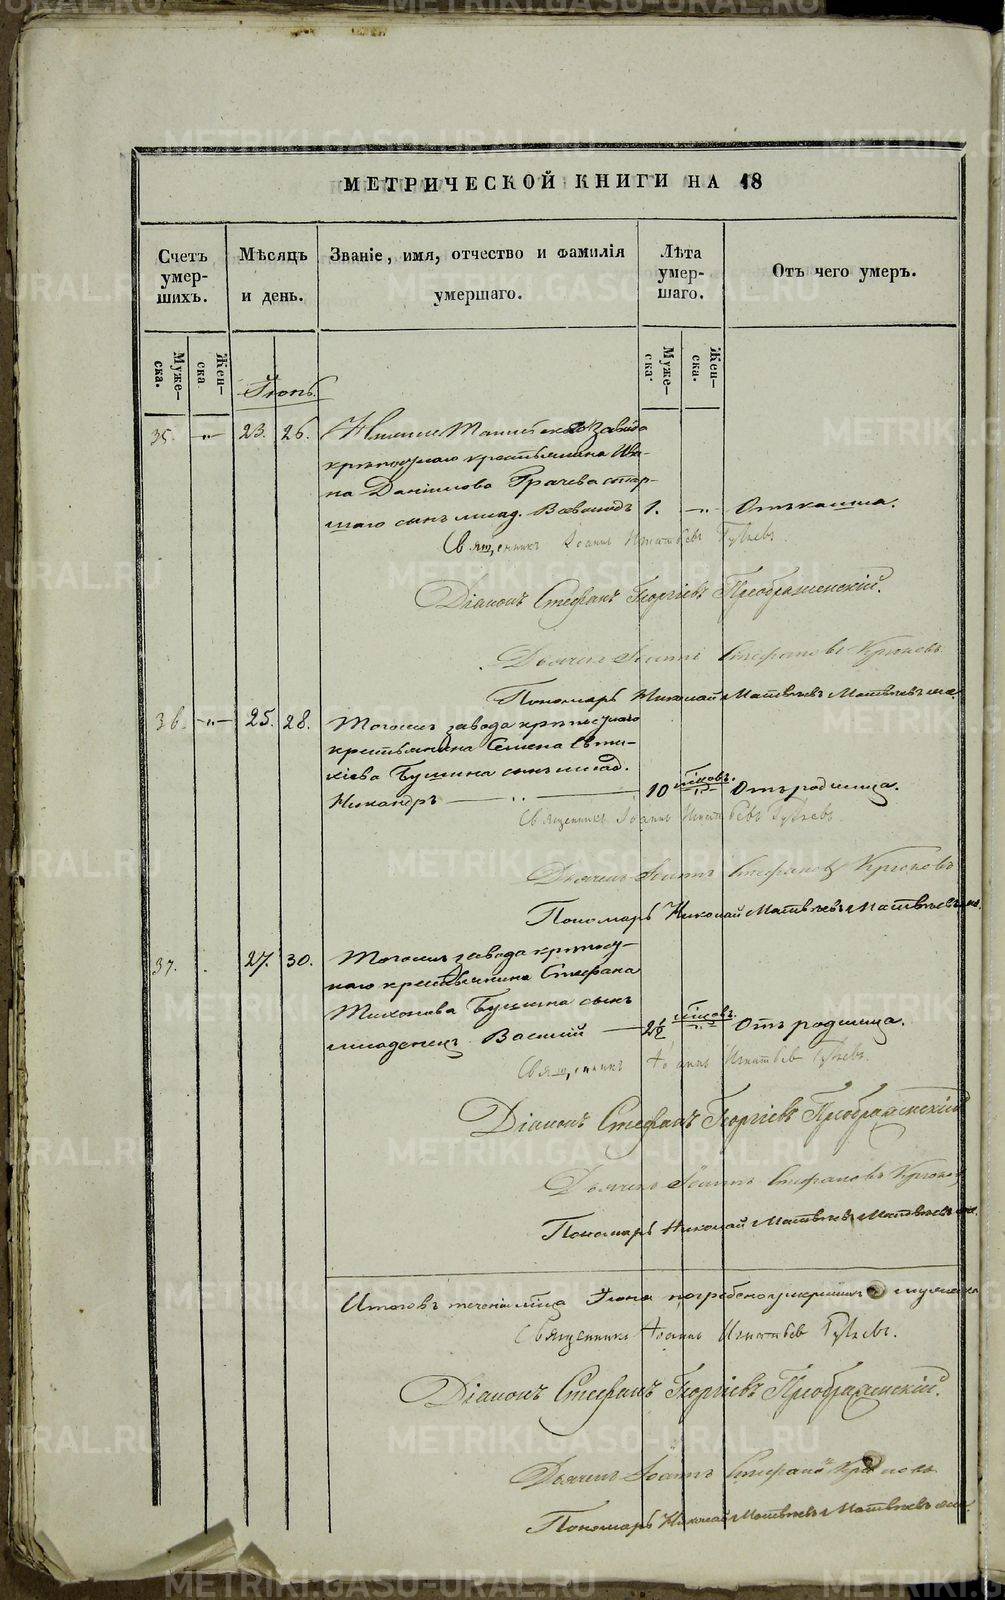 МЕТРИЧЕСКОЙ КНИГИ НА 18
Счетъ умер-шихъ.
Мѣсяцъ и день.
Званіе, имя, отчество и фамилія умершаго.
Лѣта умер-шаго.
Отъ чего умеръ.
Муже-ска.
Жен-ска
Муже-ска.
Жен-ска.
Іюнь.
35. -„- 23. 26. Нижне Тагильскаго завода
крѣпостнаго крестьянина Ива-
на Данилова Грачева стар-
шаго сынъ млад. 1. -„- Отъ кашля.
Священникъ Іоаннъ Игнатьевъ
Діаконъ Стефанъ Георгіевъ Преображенскій.
Дьячекъ Іоаннъ Стефановъ Крюковъ
Пономарь Николай Матвѣевъ Матвѣевыхъ
36. -„- 25. 28. Тогожъ завода крѣпостнаго
крестьянина Семена Евти-
хіева Бушина сынъ млад.
Никандръ 10 Отъ родимца.
Священникъ Іоаннъ Игнатьевъ
Дьячекъ Іоаннъ Стефановъ Крюковъ
Пономарь Николай Матвѣевъ
37. 27. 30. Тогожъ завода крѣпост-
наго крестьянина Стефана
Тихонова Бушина сынъ
младенецъ Василій 2½ Отъ родимца.
Священникъ Іоаннъ Игнатьевъ
Діаконъ Стефанъ Георгіевъ Преображенскій
Дьячекъ Іоаннъ Стефановъ Крюковъ
Пономарь Николай Матвѣевъ
Итого въ теченіи мѣца Іюня погребено умершихъ
Священникъ Іоаннъ Игнатьевъ
Діаконъ Стефанъ Георгіевъ Преображенскій.
Дьячекъ Іоаннъ Стефановъ Крюковъ
Пономарь Николай Матвѣевъ
METRIKI.GASO-URAL.RU